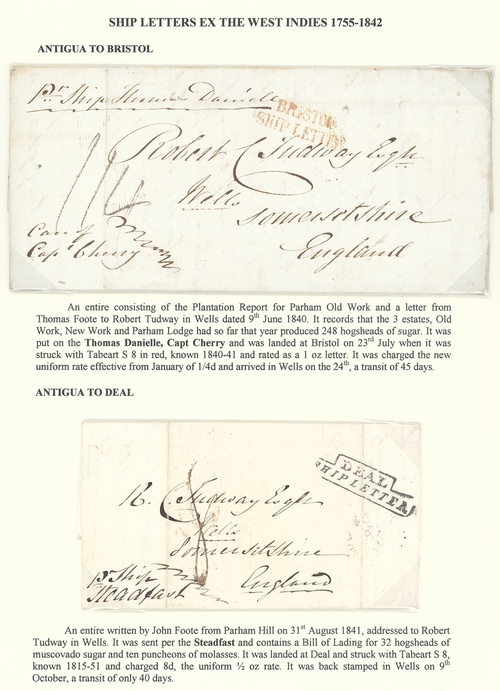 SHIP LETTERS EX THE WEST INDIES 1755-1842
ANTIGUA TO BRISTOL
Pr Ship Thomas Danielle
BRISTOL
SHIP LETTER
Robert C Tudway Esqr
Wells
Somersetshire
England
1/4
Care of
Capt Cherry
An entire consisting of the Plantation Report for Parham Old Work and a letter from
Thomas Foote to Robert Tudway in Wells dated 9th June 1840. It records that the 3 estates, Old
Work, New Work and Parham Lodge had so far that year produced 248 hogsheads of sugar. It was
put on the Thomas Danielle, Capt Cherry and was landed at Bristol on 23rd July when it was
struck with Tabeart S 8 in red, known 1840-41 and rated as a 1 oz letter. It was charged the new
uniform rate effective from January of 1/4d and arrived in Wells on the 24th, a transit of 45 days.
ANTIGUA TO DEAL
DEAL
SHIP LETTER
R. C Tudway Esqr
Wells
Somersetshire
England
8
Pr Ship
Steadfast
An entire written by John Foote from Parham Hill on 31st August 1841, addressed to Robert
Tudway in Wells. It was sent per the Steadfast and contains a Bill of Lading for 32 hogsheads of
muscovado sugar and ten puncheons of molasses. It was landed at Deal and struck with Tabeart S 8,
known 1815-51 and charged 8d, the uniform ½ oz rate. It was back stamped in Wells on 9th
October, a transit of only 40 days.